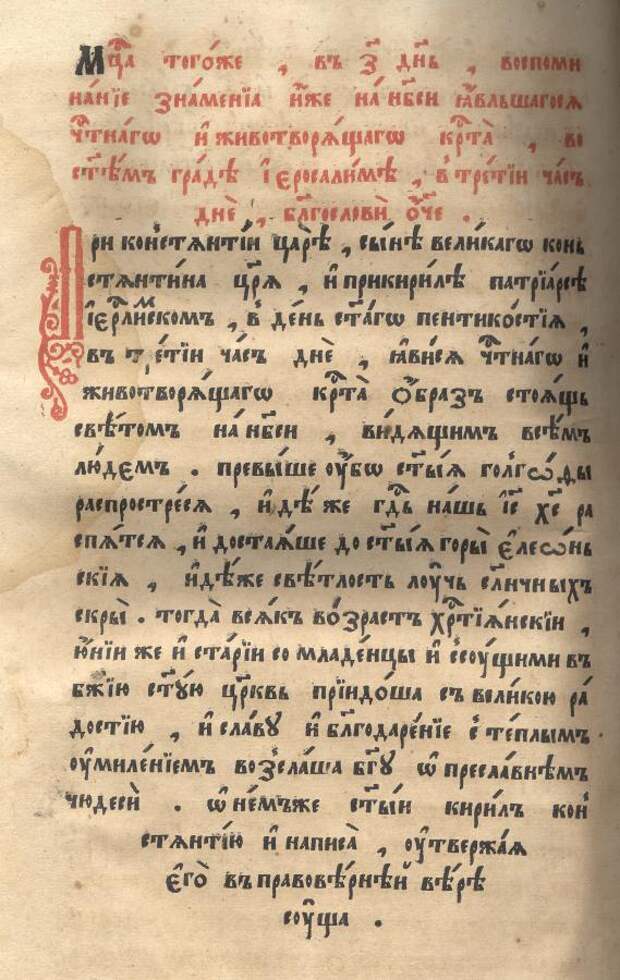 Мцⷭ҇а тогѡ́же , въ з҃ дн҃ь , воспоми
на́нїе зна́менїа и҆́же на́ нб҃си ꙗ҆́вльшагосѧ
чⷭ҇тна́гѡ и҆ животворѧ́щагѡ крⷭ҇та̀ , во
ст҃ѣ́мъ гра́дѣ і҆єросали́мѣ , в тре́тїи ча́съ
днѐ , бл҃гословѝ ѻ҆́ч҃е .
При ко́нстѧнтїи царѣ̀ , сы́нѣ вели́кагѡ конь
стѧнти́на цр҃ѧ̀ , и҆ прикири́лѣ патрїа́рсѣ
і҆єрⷭ҇ли́мскомъ , в де́нь ст҃а́гѡ пентико́стїѧ ,
въ тре́тїи ча́съ днѐ , ꙗ҆ви́сѧ чⷭ҇тна́гѡ и҆
животворѧ́щагѡ крⷭ҇та̀ ѻ҆́бразъ стоѧ́щь
свѣ́томъ на́ нб҃си , ви́дѧщимъ всѣ́мъ
лю́демъ . превы́ше оу҆́бѡ ст҃ы́ѧ голгѡ́ѳы
распростре́сѧ , и҆дѣ́ же гдⷭ҇ь на́шь і҆с҃ х҃с ра
спѧ́тсѧ , и҆ достаѧ́ше до ст҃ы́ѧ горы̀ є҆леѡ́нь
скїѧ , и҆дѣ́же свѣ́тлость лоу́чь сл҃ничныхъ
скры̀ . тогда̀ всѧ́къ во́зрастъ хрⷭ҇тїѧ́нскїи ,
ю҆́нїи же и҆ ста́рїи со младе́нцы и҆ ссоу́щими въ
бж҃їю ст҃ꙋ́ю цр҃ковь прїидо́ша съ вели́кою ра́
достїю , и҆ сла́вꙋ и҆ бл҃годаре́нїе с те́плымъ
оу҆миле́нїемъ возсла́ша бг҃ꙋ ѡ҆ пресла́внѣмъ
чюдесѝ . ѡ҆ не́мъже ст҃ы́и кири́лъ кон
стѧ́нтїю и҆ написа̀ , оу҆твержа́ѧ
є҆го̀ въ правовѣ́рнѣй вѣ́рѣ
соу́ща .